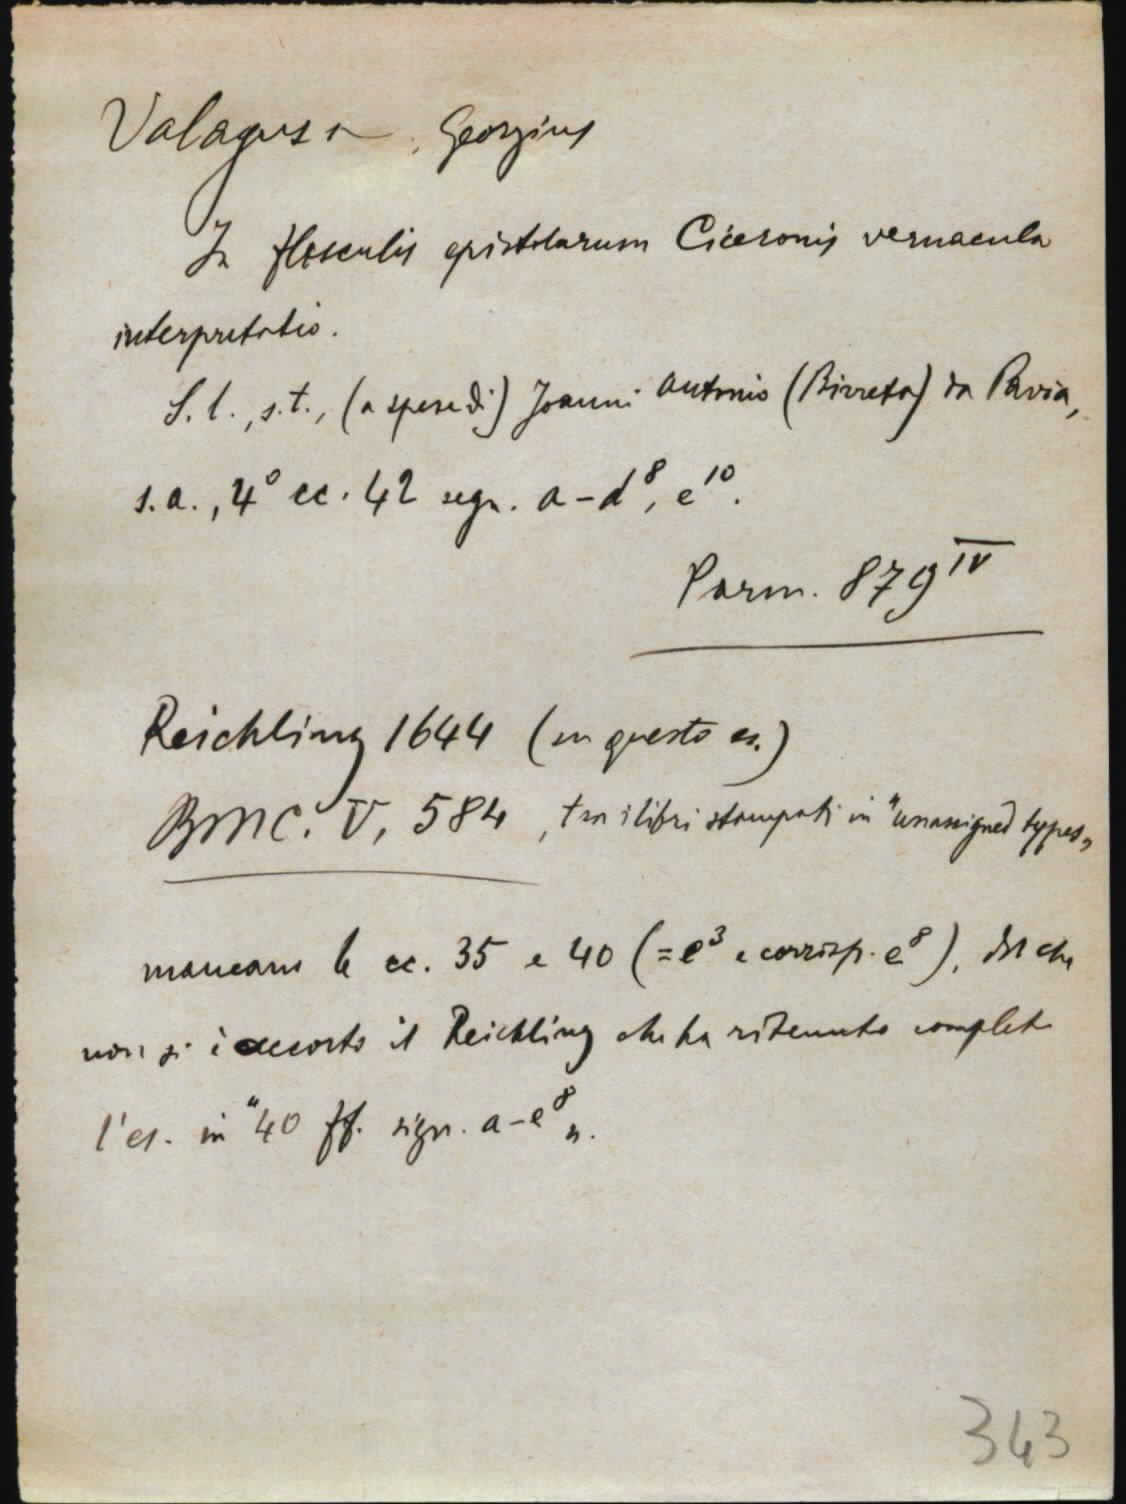 Valagussa, Georgius
In flosculis epistolarum Ciceronis vernacula
interpretatio.
S. l., s. t., (a spese di) Joanni Antonio (Birreta) da Pavia,
s. a., 4° cc. 42 segn. a-d⁸, e¹⁰.
Parm. 879 IV
Reichling 1644 (su questo es.)
BMC. V, 584, tra i libri stampati in "unassigned types„
mancano le cc. 35 e 40 (= e³ e corrisp. e⁸), del che
non si è accorto il Reichling che ha ritenuto completo
l'es. in "40 ff. sign. a-e⁸„.
343